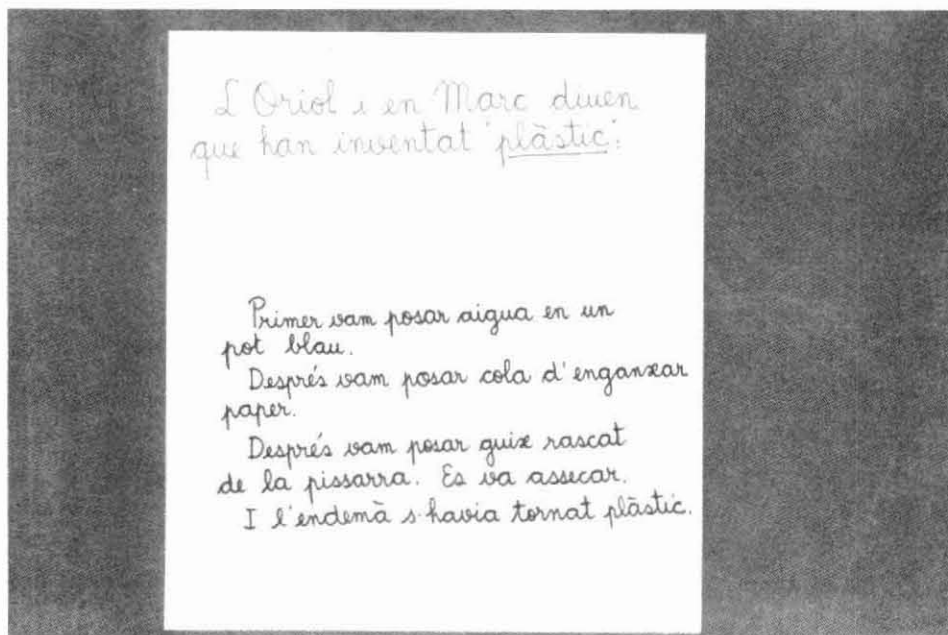 L'Oriol i en Marc diuen
que han inventat "plàstic":
Primer vam posar aigua en un
pot blau.
Després vam posar cola d'enganxar
paper.
Després vam posar guix rascat
de la pissarra. Es va assecar.
I l'endemà s'havia tornat plàstic.